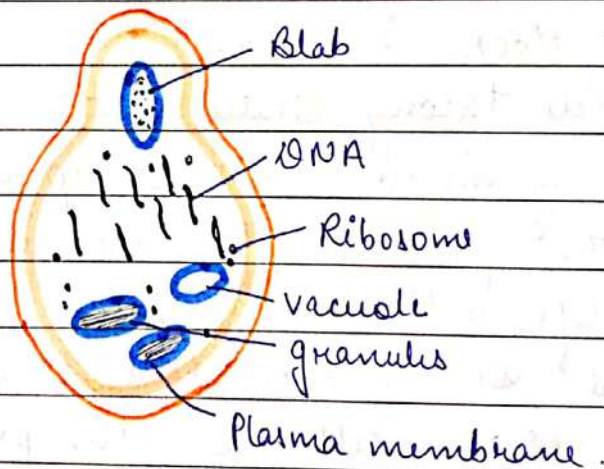 Blab
DNA
Ribosome
vacuole
granules
Plasma membrane.